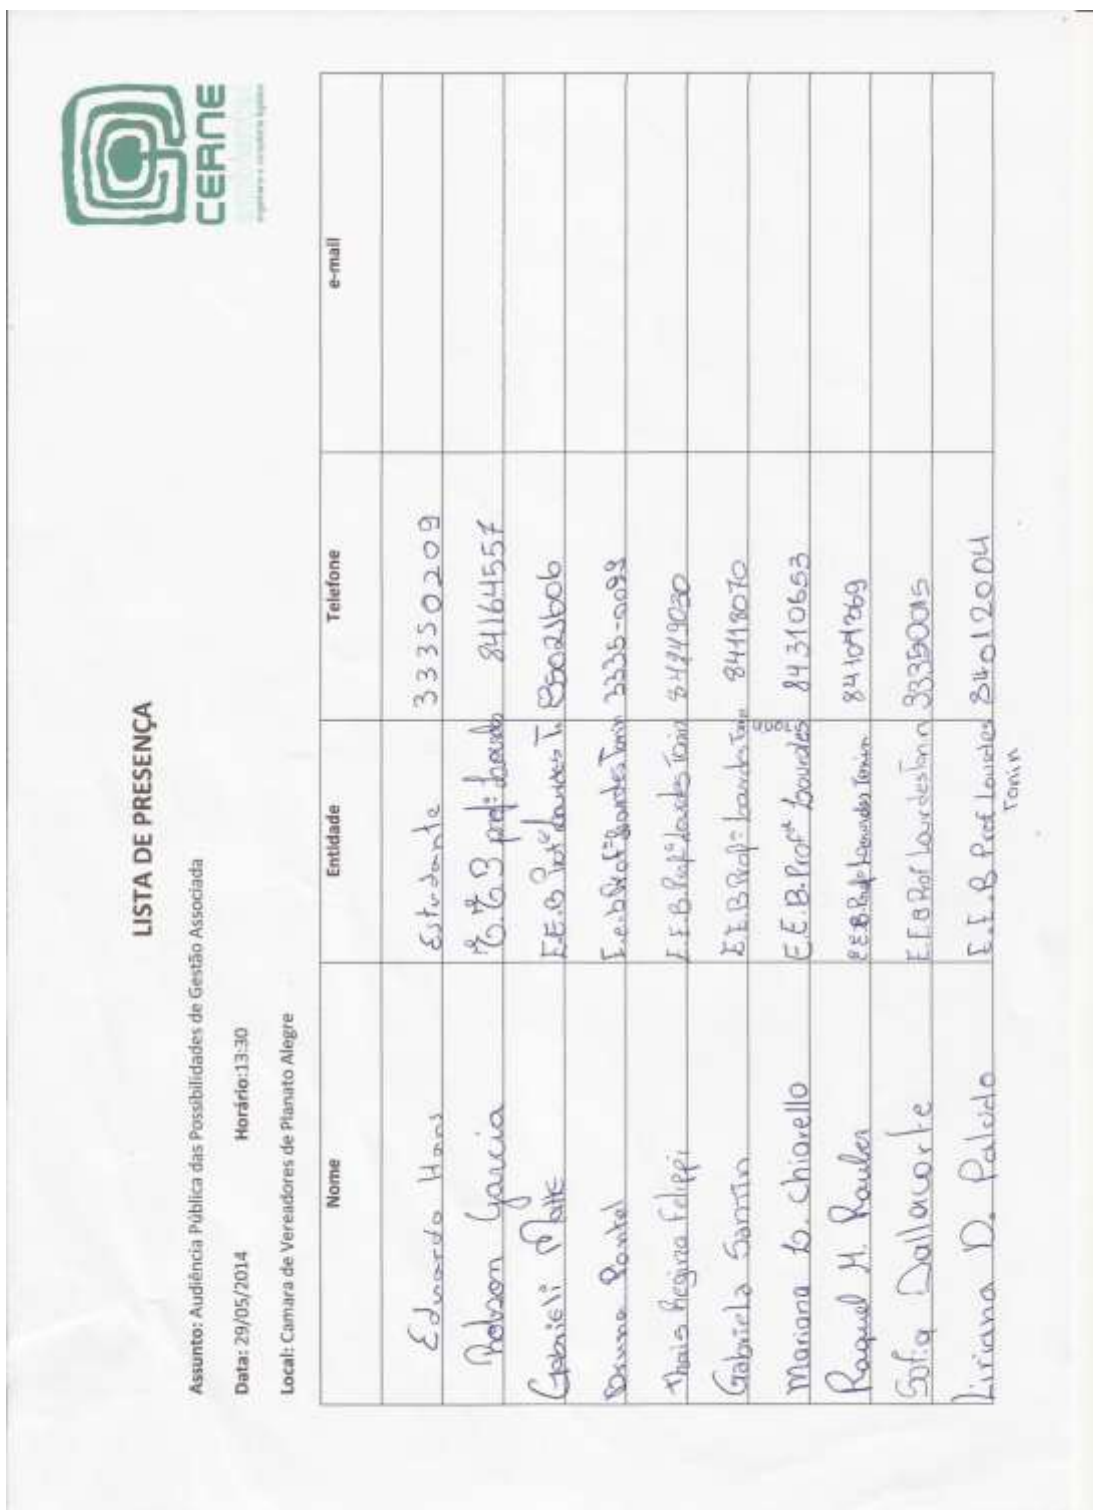 CERNE
LISTA DE PRESENÇA
Assunto: Audiência Pública das Possibilidades de Gestão Associada
Data: 29/05/2014 Horário:13:30
Local: Camara de Vereadores de Planato Alegre
Nome Entidade Telefone e-mail
Eduardo Hans Estudante 33350209
Robson Garcia E.E.B profª Lourdes 84164557
Gabrieli E.E.B Profª Lourdes T. 85021606
Bruna Pontel E.e.b Profª Lourdes Tonin 3335-0099
Thais Regina Felippi E.E.B Profª Lourdes Tonin
Gabriela Santin E.E.B Profª Lourdes Tonin 84118070
Mariana L. Chiarello E.E.B. Profª Lourdes 84310653
Tonin
Raquel H. Rauber E.E.B. Profª Lourdes Tonin
Sofia Dallacorte E.E.B Prof Lourdes Tonin 33350015
Liriana D. E.E.B Prof Lourdes 84012004
Tonin